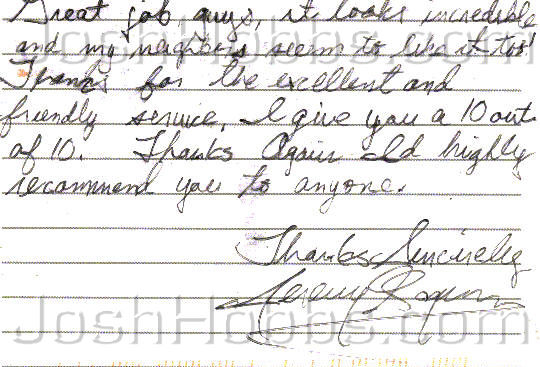 Great job guys, it looks incredible
and my neighbors seem to like it too!
Thanks for the excellent and
friendly service, I give you a 10 out
of 10. Thanks Again Id highly
recommend you to anyone.
Thanks Sincirely
Jeremy
JoshHobbs.com
JoshHobbs.com
JoshHobbs.com